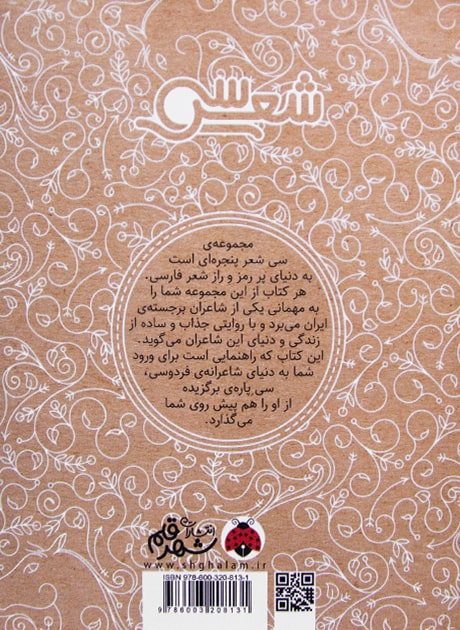 سی شعر
مجموعه‌ی
سی شعر پنجره‌ای است
به دنیای پر رمز و راز شعر فارسی.
هر کتاب از این مجموعه شما را
به مهمانی یکی از شاعران برجسته‌ی
ایران می‌برد و با روایتی جذاب و ساده از
زندگی و دنیای این شاعران می‌گوید.
این کتاب که راهنمایی است برای ورود
شما به دنیای شاعرانه‌ی فردوسی،
سی پاره‌ی برگزیده
از او را هم پیش روی شما
می‌گذارد.
انتشارات
شهر قلم
www.shghalam.ir
ISBN 978-600-320-813-1
9 786003 208131